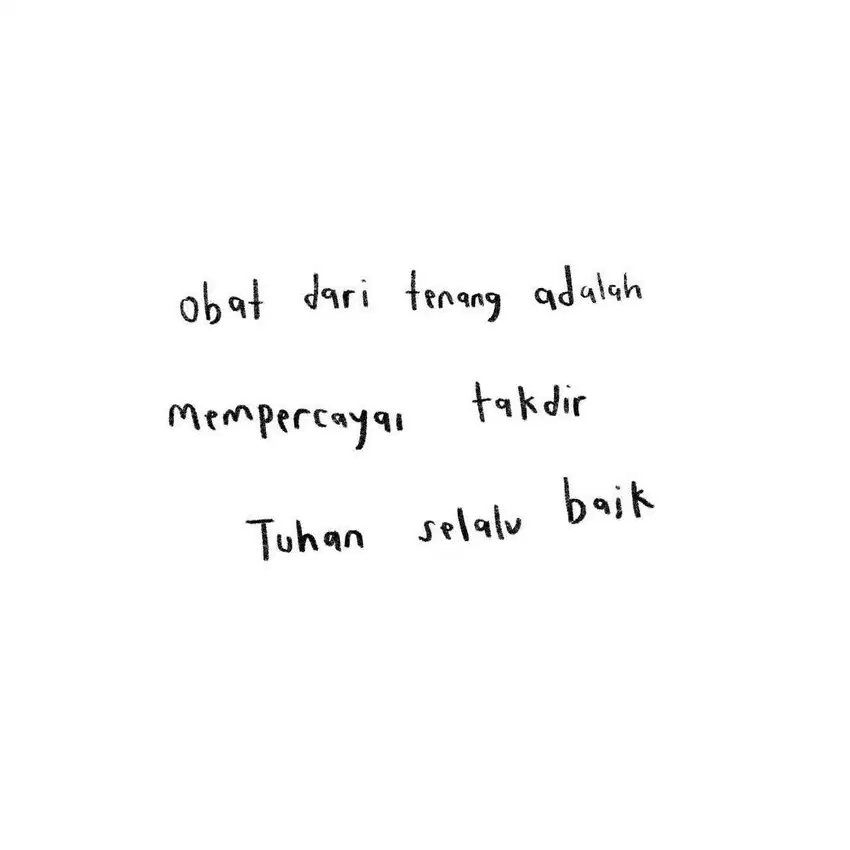 obat dari tenang adalah
mempercayai takdir
Tuhan selalu baik